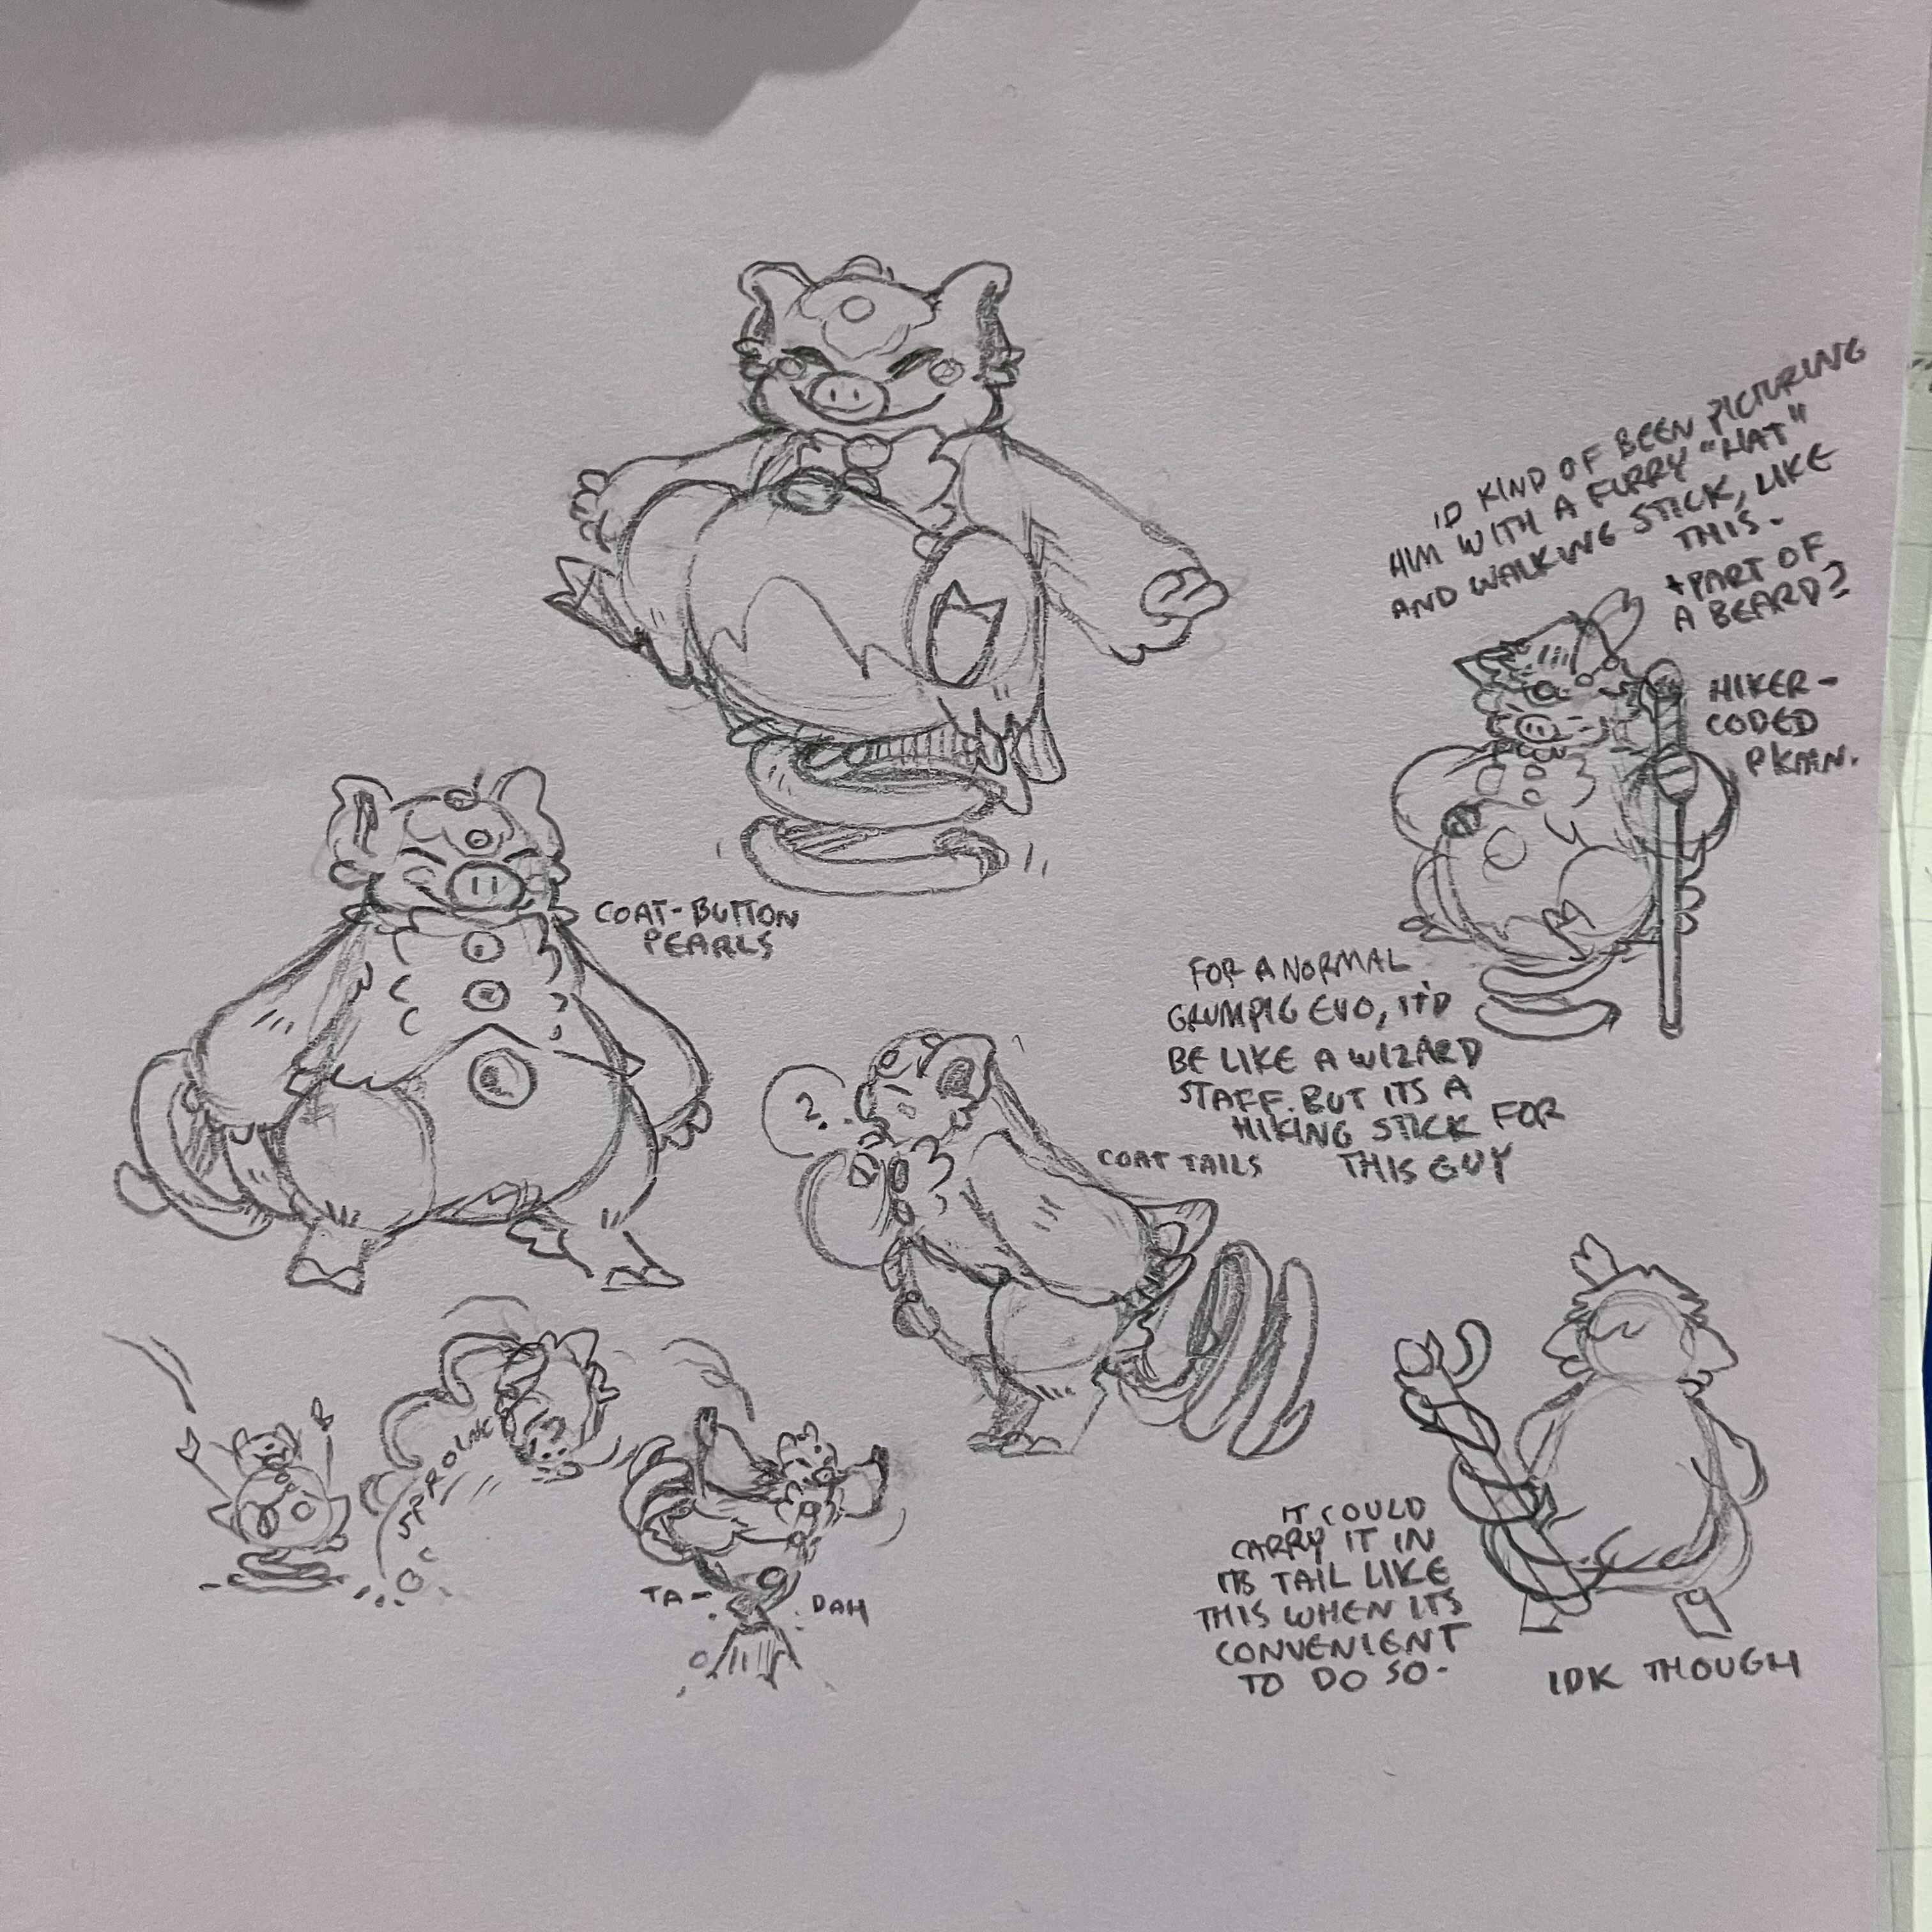 I'D KIND OF BEEN PICTURING
HIM WITH A FURRY "HAT"
AND WALKING STICK, LIKE
THIS.
+ PART OF
A BEARD?
HIKER-
CODED
PKMN.
COAT-BUTTON
PEARLS
FOR A NORMAL
GRUMPIG EVO, IT'D
BE LIKE A WIZARD
STAFF. BUT ITS A
HIKING STICK FOR
THIS GUY
?
COAT TAILS
SPROINK
TA-
DAH
IT COULD
CARRY IT IN
ITS TAIL LIKE
THIS WHEN ITS
CONVENIENT
TO DO SO-
IDK THOUGH